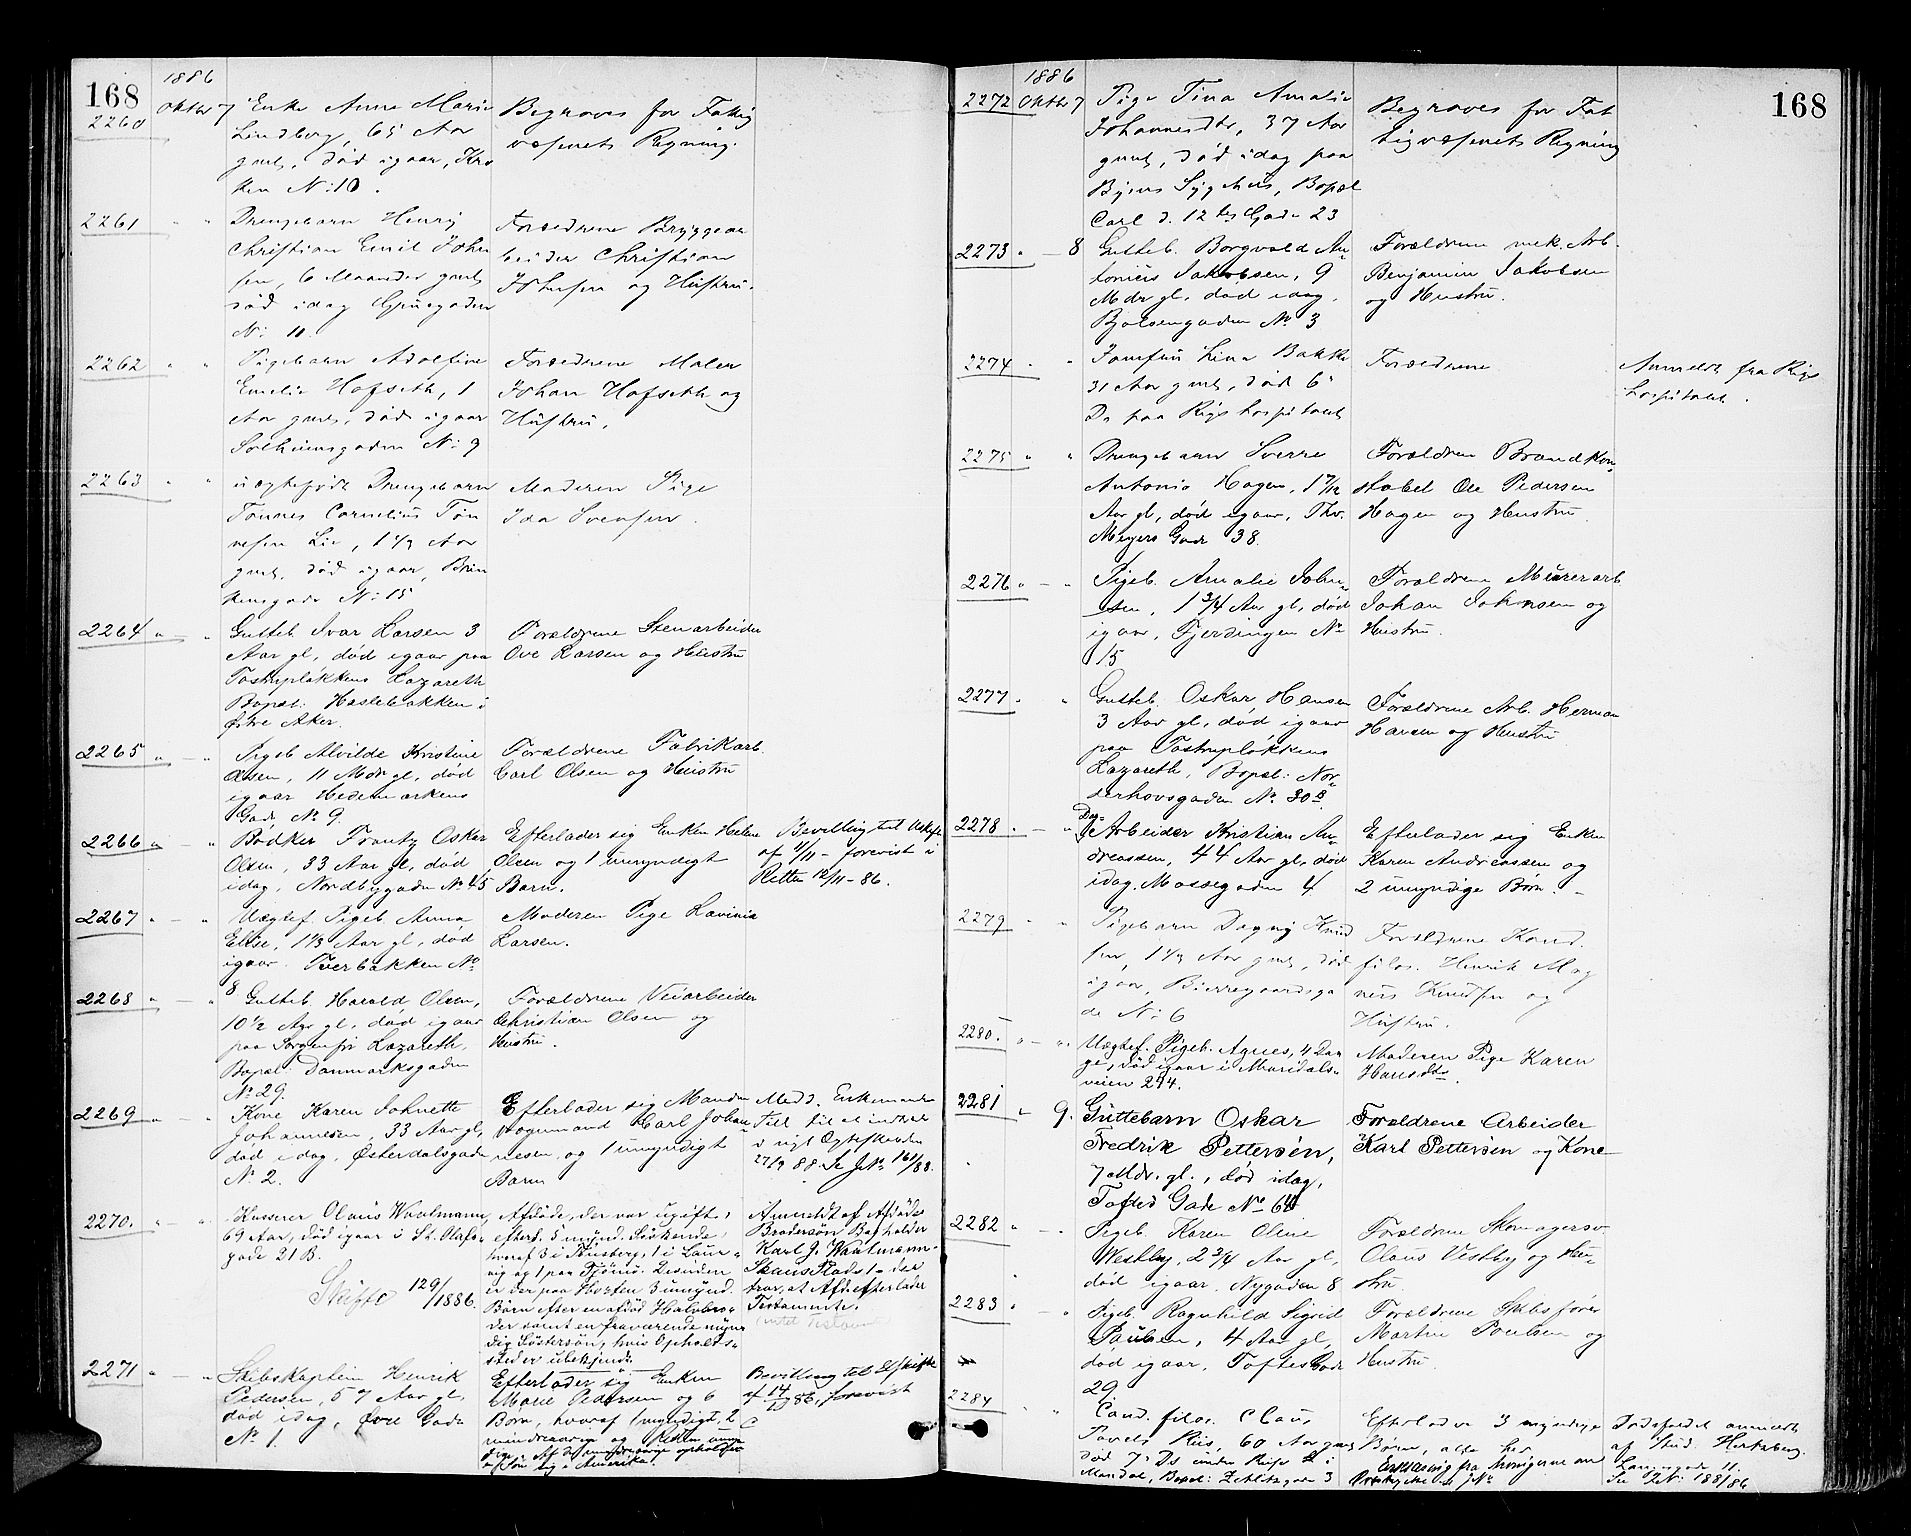 168
1886
2260 Oktbr 7 Enke Anne Marie
Lindberg, 65 Aar
gml, død igaar, Kro
ken No 10.
Begraves for Fattig
væsenets Regning.
2261 " " Drengebarn Henrij
Christian Emil Johan
sen, 6 Maaneder gml
død idag Grüsgaden
No 11.
Forældrene Bryggear
beider Christian
Johansen og Hüstru.
2262 " " Pigebarn Adolfine
Emelie Hofseth, 1
Aar gml, død igaar
Solheimsgaden No 9
Forældrene Maler
Johan Hofseth og
Hüstru.
2263 " " uægtefødt Drengebarn
Tønnes Cornelius Tøn
nesen Lie, 1 1/2 Aar
gml, død igaar, Brin
kensgade No 15
Moderen Pige
Ida Svensen.
2264 " " Gutteb. Ivar Larsen 3
Aar gl, død igaar paa
Tostrupløkkens Lazareth
Bopæl: Haslebakken i
Østre Aker.
Forældrene Stenarbeider
Ove Larsen og Hustru
2265 " " Pigeb Alvilde Kristine
Olsen, 11 Mdr gl, død
igaar Hedemarkens
Gade No 9.
Forældrene Fabrikarb.
Carl Olsen og Hustru
2266 " " Bødker Frantz Oskar
Olsen, 33 Aar gl, død
idag, Nordbygaden No 45
Efterlader sig Enken Helene
Olsen og 1 umyndigt
Barn.
Bevilling til Uskifte
af 11/11 - forevist i
Retten 12/11 - 86.
2267 " " Uægtef Pigeb Anna
Elise, 1 1/3 Aar gl, død
igaar. Tverbakken No
8
Moderen Pige Lavinia
Larsen.
2268 " " Gutteb. Harald Olsen,
10 1/2 Aar gl, død igaar
paa Sorgenfri Lazareth,
Bopæl: Danmarksgaden
No 29.
Forældrene Veiarbeider
Christian Olsen og
Hustru.
2269 " " Kone Karen Johnette
Johannesen, 33 Aar gl,
død idag, Østerdalsgade
No 2.
Efterlader sig Manden
Vognmand Carl Johan
nesen, og 1 umyndigt
Barn
Medd. Enkemanden
Till til at indtræ
i nyt Ægteskab den
27/9 88. Se J.No 161/88.
2270. " " Kusserer Olaus Waalmann,
69 Aar, død igaar i St. Olafs
gade 21 B.
Skifte 129/1886.
Afdøde, der var ugift,
efterl. 5 mynd. Søskende,
hvoraf 3 i Tønsberg, 1 i Laur-
vig og 1 paa Tjømø. Desuden
er der paa Horten 3 umynd.
Børn efter en afdød Halvbro-
der samt en fraværende myn
dig Søstersøn, hvis Opholds-
sted er ubekjendt.
Anmeldt af Afdødes
Brodersøn Bogholder
Karl J. Waalmann
Skausplads 1 - der
tror, at Afd. efterlader
Testamente.
2271 " " Skibskaptein Henrik
Pedersen, 57 Aar gl,
død idag, Øvre Gade
No 1.
Efterlader sig Enken
Marie Pedersen og 6
Børn, hvoraf 1 myndigt, 2
mindreaarige og Resten umyn
dige. Af de mindreaarige opholder
en Søn sig i Amerika.
Bevilling til Uskifte
af 14/12 86, forevist
168
1886
2272 Oktbr 7 Pige Tina Amalie
Johannesdtr, 37 Aar
gml, død idag paa
Byens Sygehus, Bopæl
Carl d. 12tes Gade 23
Begraves for Fat
tigvæsenets Regning
2273 " - 8 Gutteb. Borgvald An-
tonius Jakobsen, 9
Mdr gl, død idag.
Bjølsengaden No 3
Forældrene mek. Arb.
Benjamin Jakobsen
og Hustru.
2274 " " Jomfru Lina Bakke
31 Aar gml, død 6'
Ds paa Rigshospitalet
Forældrene
Anmeldt fra Rigs
hospitalet.
2275 " " Drengebarn Sverre
Antonio Hagen, 1 7/12
Aar gl, død igaar, Thv.
Meyers Gade 38.
Forældren Brandkon-
stabel Ole Pedersen
Hagen og Hustru
2276 " " Pigeb. Amalie Johan-
sen, 1 3/4 Aar gl, død
igaar, Fjerdingen No
15
Forældrene Murerarb
Johan Johnsen og
Hustru.
2277 " " Gutteb. Oskar Hansen
3 Aar gl, død igaar
paa Tostrupløkkens
Lazareth, Bopæl: Nor-
derhovsgaden No 30 B.
Forældrene Arb. Herman
Hansen og Hustru
2278. - " Dag-
Arbeider Kristian An-
dreassen, 44 Aar gl, død
idag. Mossegaden 4
Efterlader sig Enken
Karen Andreassen og
2 umyndige Børn. -
2279 " " Pigebarn Dagny Knud
sen, 1 1/2 Aar gml, død
igaar, Bierregaardsga
de No 6
Forældrene Kand.
filos. Henrik Mag
nus Knudsen og
Hüstru.
2280. " " Uægtef. Pigeb. Agnes, 4 Da-
ge, død igaar i Maridals-
veien 244.
Moderen Pige Karen
Hansdtr.
2281 " 9. Guttebarn Oskar
Fredrik Pettersen,
7 Mdr. gl., død idag,
Toftes Gade No 60
Forældrene Arbeider
Karl Pettersen og Kone
2282 " " Pigeb. Karen Oline
Westby, 2 3/4 Aar gl,
død igaar. Nygaden 8
Forældrene Skomagersv.
Olaus Vestby og Hu-
stru
2283 " " Pigeb. Ragnhild Sigrid
Paulsen, 4 Aar gl,
død igaar, Toftes Gade
29
Forældrene Skibsfører
Martin Poulsen og
Hustru.
2284 " " Cand. filos. Claus
Pavels Riis, 60 Aar gml
død 7' Ds under Reise i
Mandal, Bopæl: Zetlitzgade 3
Efterlader 3 myndige
Børn, alle her
Erklæring fra Arvingerne om
Dødsfaldet anmeldt
af Stud. Hertzberg.
Langesgade 11.
Se J.No 188/86